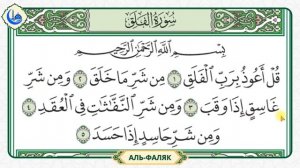 سُورَةُ الْفَلَقِ
بِسْمِ اللَّهِ الرَّحْمَٰنِ الرَّحِيمِ
قُلْ أَعُوذُ بِرَبِّ الْفَلَقِ ١ مِن شَرِّ مَا خَلَقَ ٢ وَمِن شَرِّ
غَاسِقٍ إِذَا وَقَبَ ٣ وَمِن شَرِّ النَّفَّاثَاتِ فِي الْعُقَدِ ٤
وَمِن شَرِّ حَاسِدٍ إِذَا حَسَدَ ٥
АЛЬ-ФАЛЯК